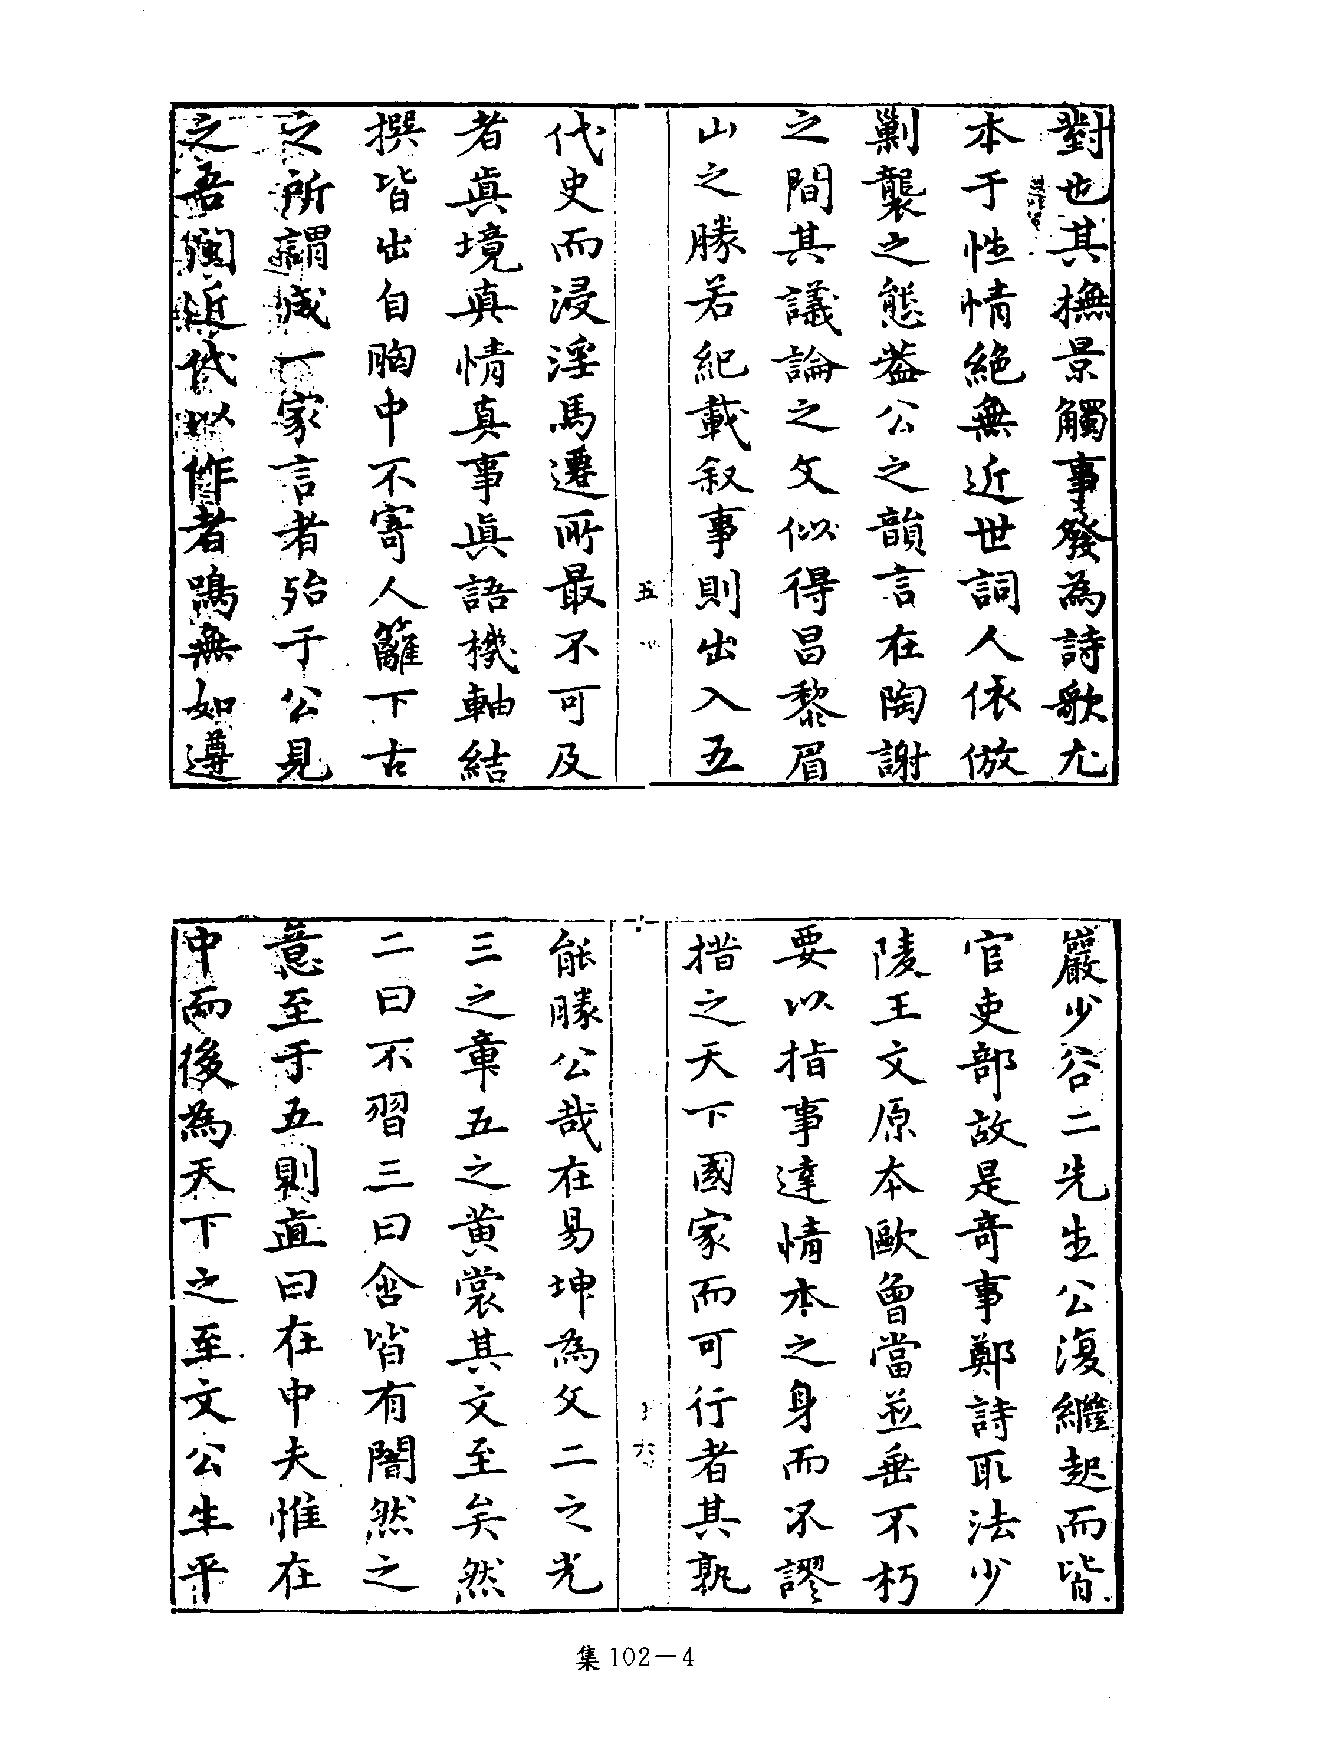 對也其撫景觸事發為詩歌尤
本于性情絕無近世詞人依倣
剿襲之態葢公之韻言在陶謝
之間其議論之文似得昌黎眉
山之勝若紀載叙事則出入五
五
代史而浸淫馬遷所最不可及
者眞境真情真事眞語機軸結
撰皆出自胸中不寄人籬下古
之所謂成一家言者殆于公見
之吾閩近代以作者鳴無如遵
巖少谷二先生公復繼起而皆
官吏部故是奇事鄭詩取法少
陵王文原本歐曾當並垂不朽
要以指事達情本之身而不謬
措之天下國家而可行者其孰
六
能勝公哉在易坤為文二之光
三之章五之黄裳其文至矣然
二曰不習三曰含皆有闇然之
意至于五則直曰在中夫惟在
中而後為天下之至文公生平
集102－4